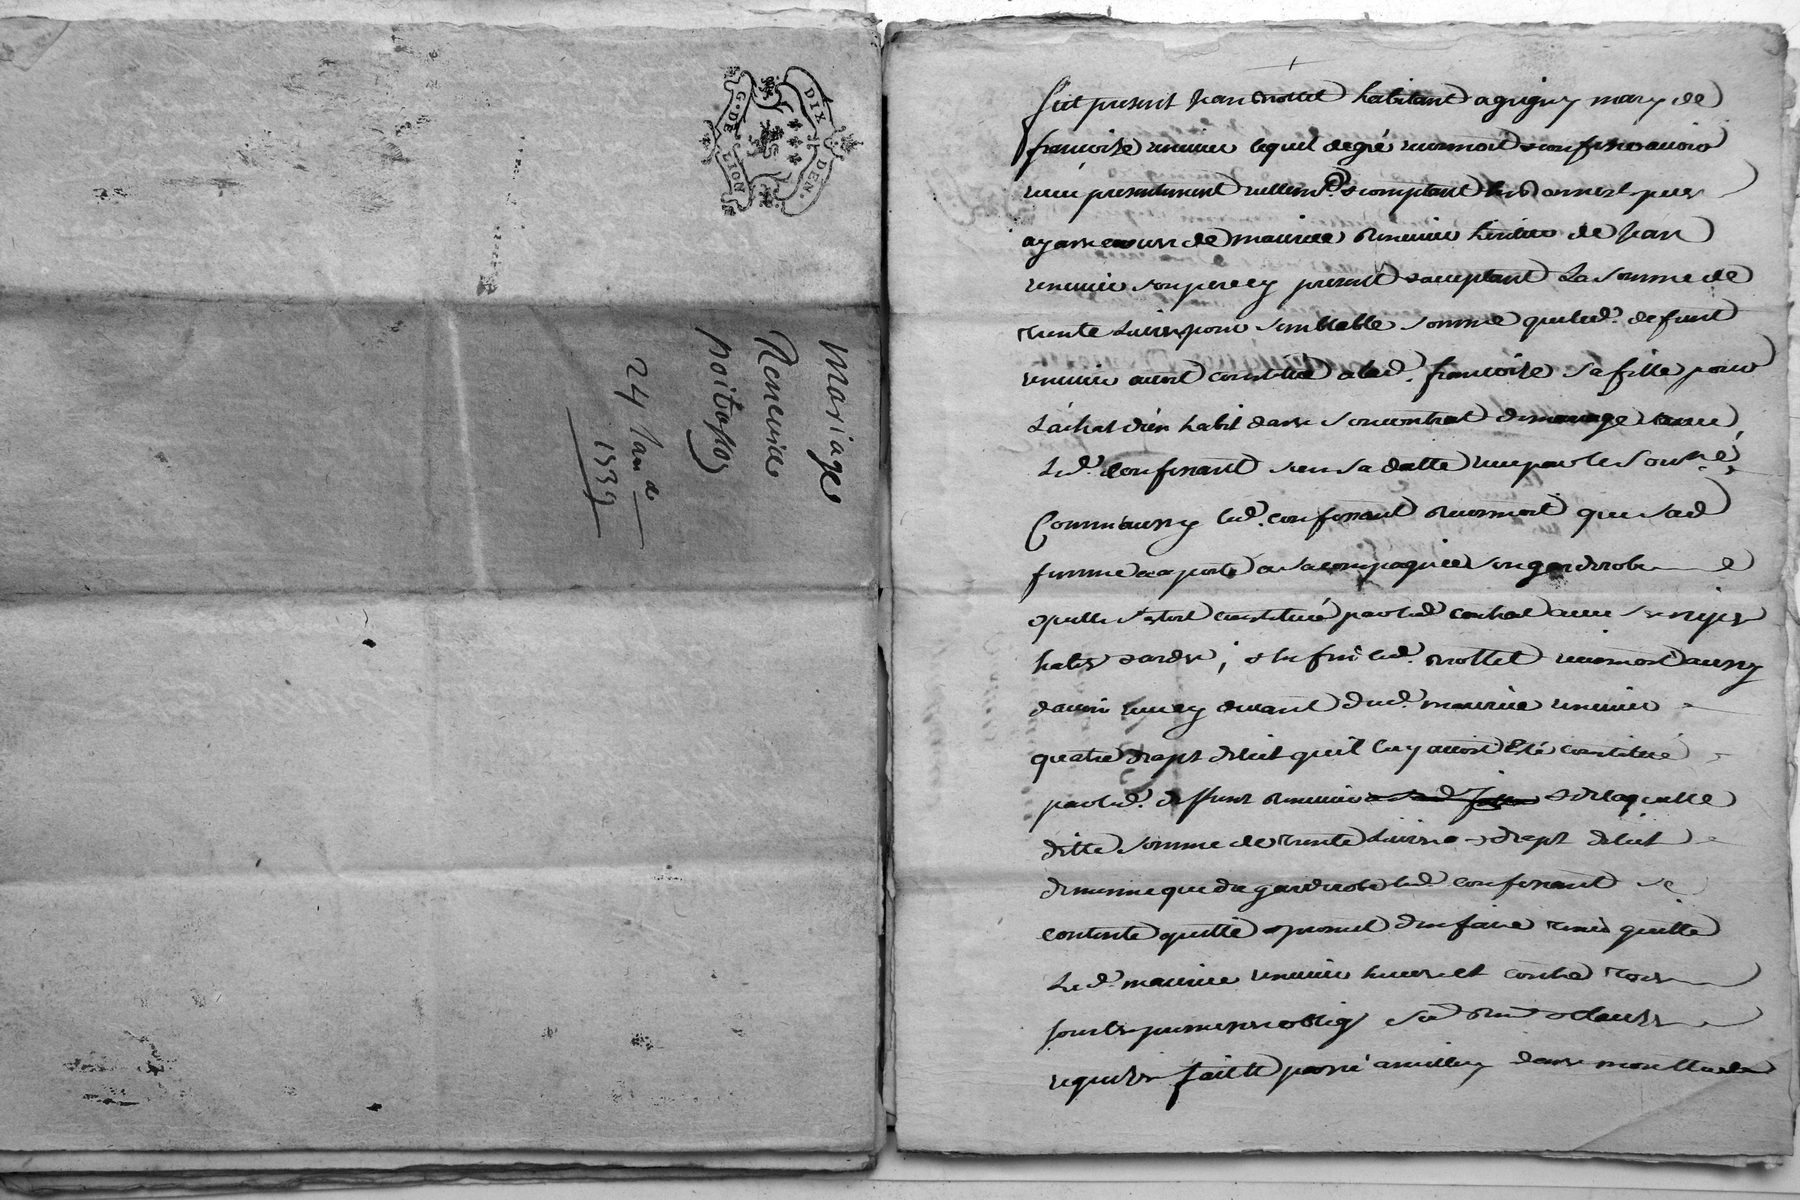 G. DE LION
DIX DEN.
Mariage
Renevier
poitasson
24 Jan
1739
fut present Jean Mottet habitant a grigny mary de
francoise renevier lequel de gré reconnoit & confesse avoir
receu presentement reellemt & comptant
de maurice Renevier heritier de Jean
renevier son pere cy present & acceptant La somme de
trente Livres pour semblable somme que led. defunt
renevier avoit constitué a lad. francoise sa fille pour
L'achat d'un habit dans son contrat de mariage avec
Led. confessant sous sa datte receu par le
Comm'aussy led. confessant Reconnoit que sad
femme a aporté a sa compagnie son garderobe
quelle s'estoit constitué par led contrat avec ses
habits ; & en fin led. Mottet reconnoit aussy
davoir receu cy devant dud. maurice renevier
quatre draps de lict quil luy avoit Eté constitué
par led. deffunt Renevier & de laquelle
ditte somme de trente Livres draps de lict
de mesme que du garderobe led. confessant se
contente quitte & promet d'en faire tenir quitte
Led. maurice renevier envers et contre tous
sous les oblig & clauses
requises fait & passé a millery dans